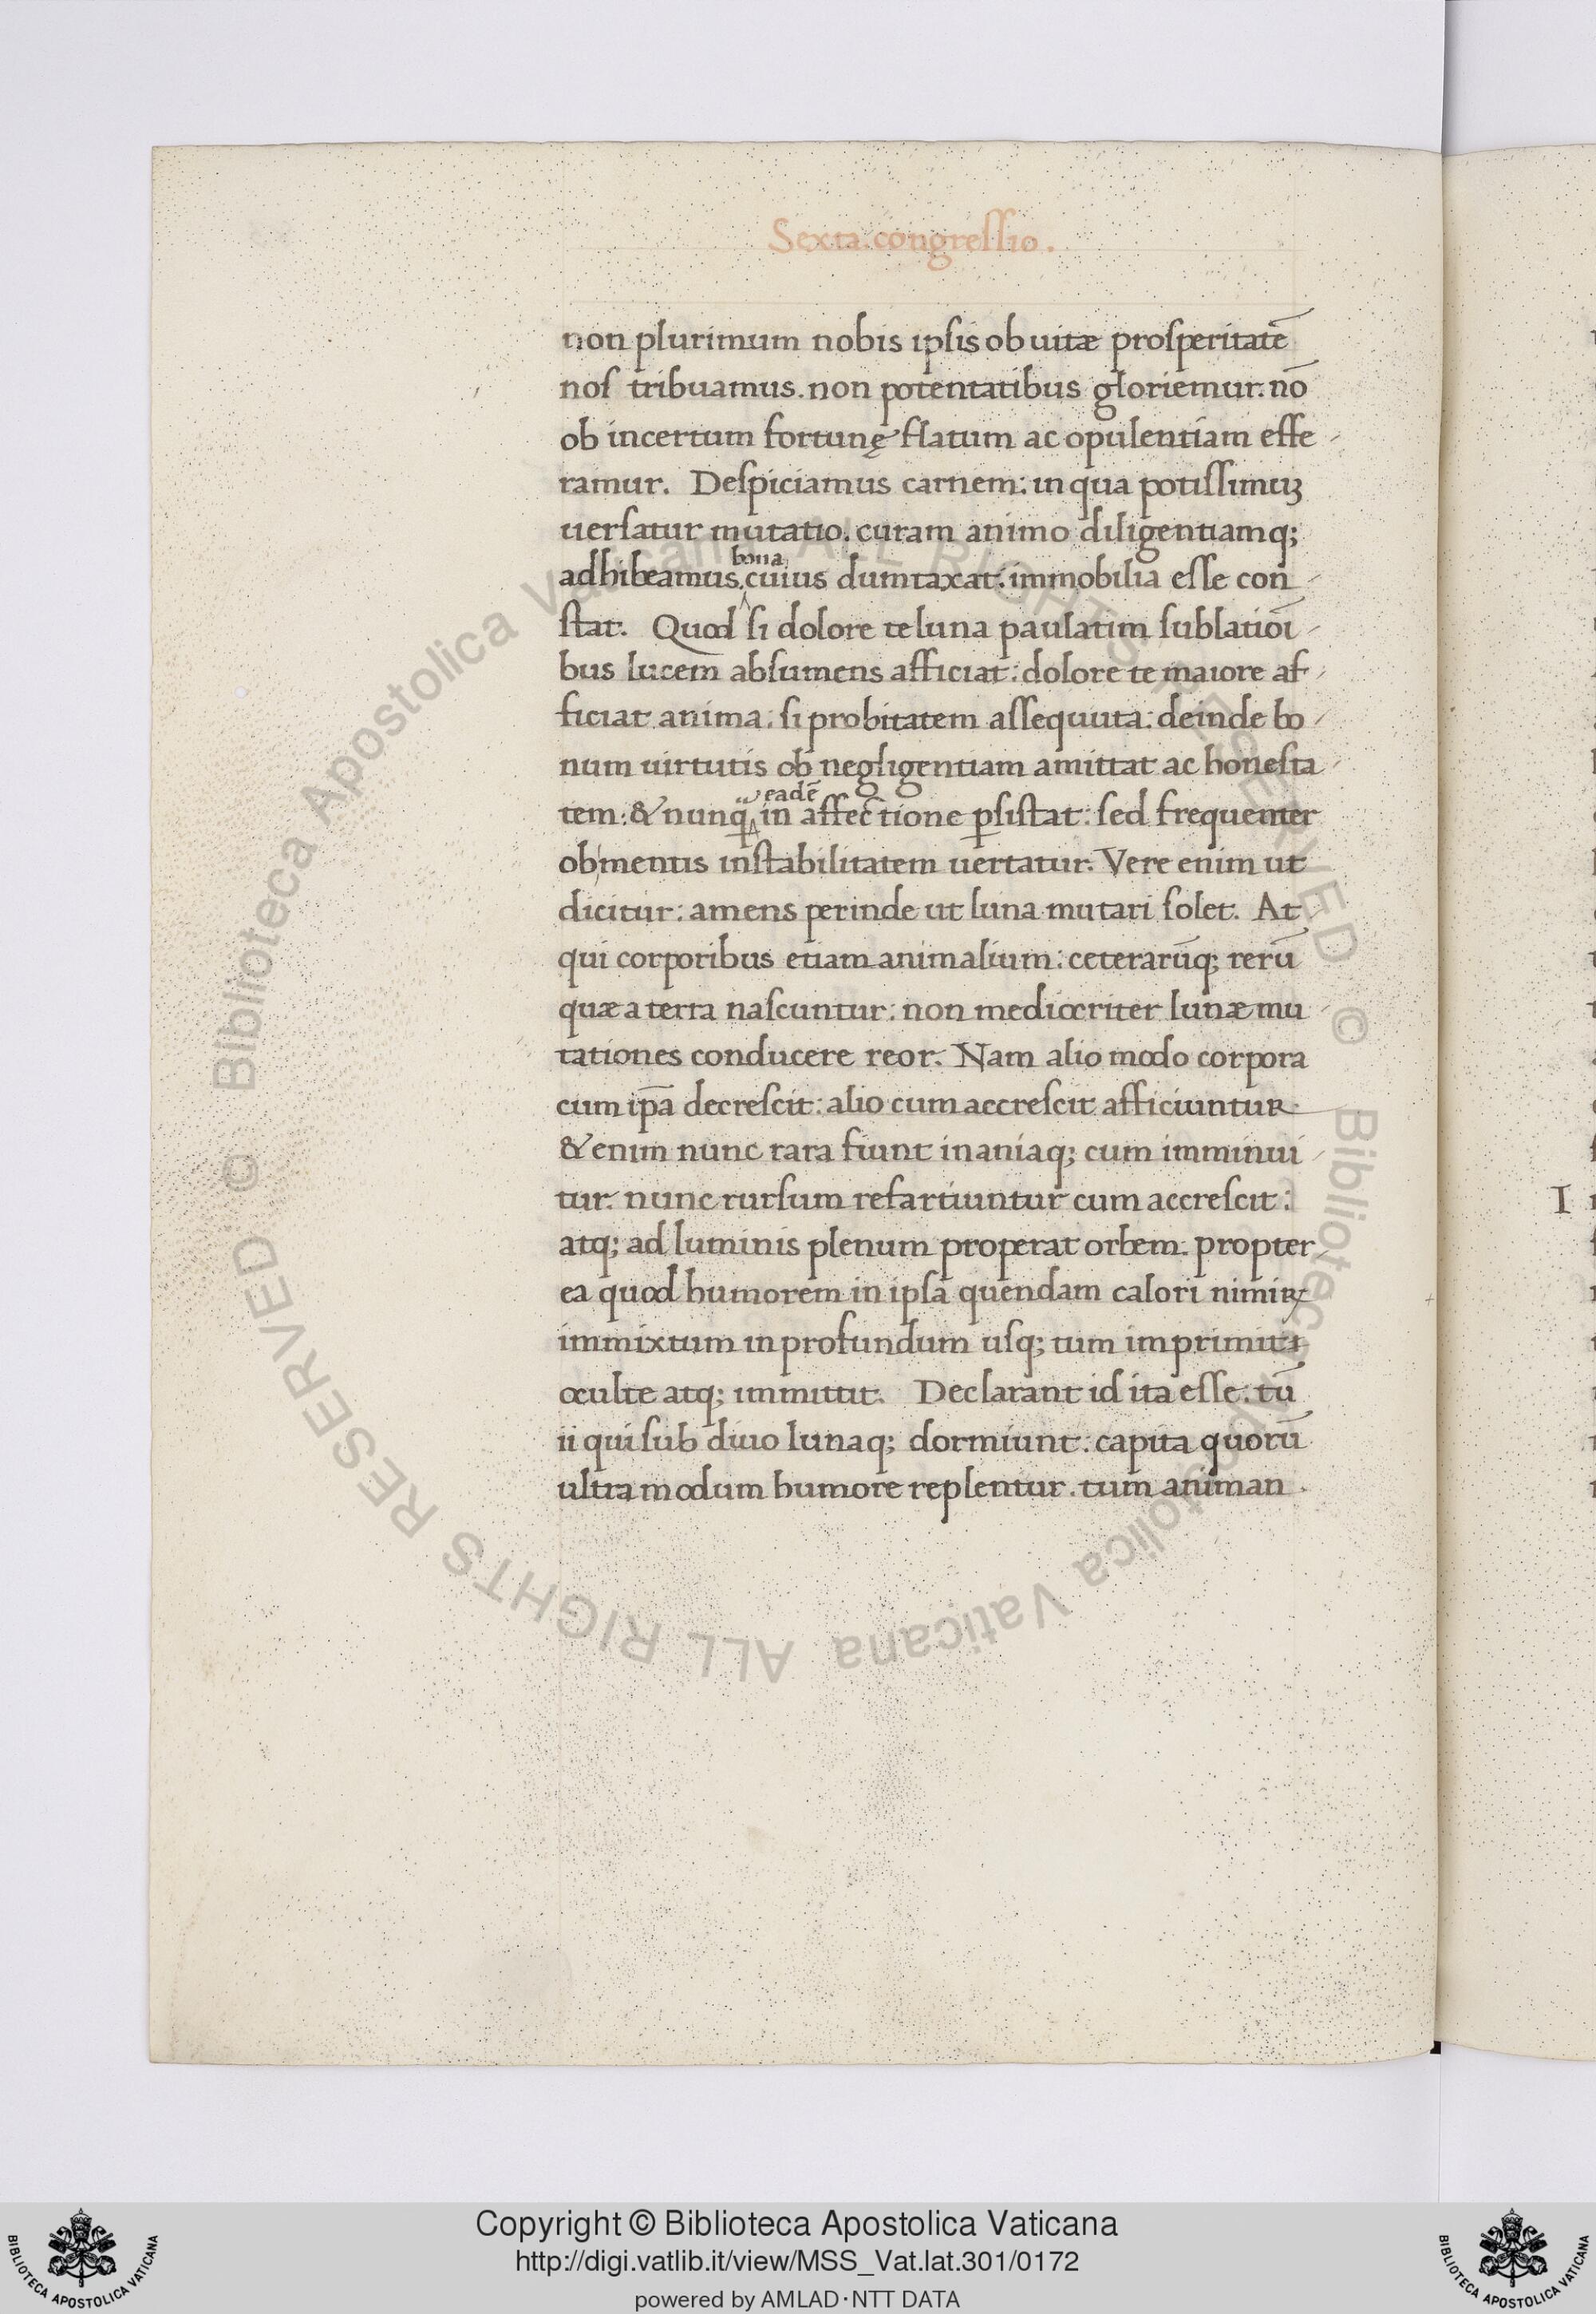 Sexta.congressio.
non plurimum nobis ipsis ob uitæ prosperitatē
nos tribuamus. non potentatibus gloriemur. nō
ob incertum fortunę flatum ac opulentiam effe-
ramur. Despiciamus carnem: in qua potissimuꝫ
uersatur mutatio. curam animo diligentiamq;
bona
adhibeamus. cuius dumtaxat: immobilia esse con-
stat. Quod si dolore te luna paulatim sublatiōi-
bus lucem absumens afficiat: dolore te maiore af-
ficiat anima: si probitatem assequuta: deinde bo-
num uirtutis ob negligentiam amittat ac honesta-
eadē
tem: & nunq̈̄ in affectione ꝑsistat: sed frequenter
ob mentis instabilitatem uertatur. Vere enim ut
dicitur: amens perinde ut luna mutari solet. At-
qui corporibus etiam animalium: ceterarūq; rerū
quæ a terra nascuntur: non mediocriter lunæ mu-
tationes conducere reor. Nam alio modo corpora
cum ip̄a decrescit: alio cum accrescit afficiuntur
& enim nunc rara fiunt inaniaq; cum imminui-
tur. nunc rursum refartiuntur cum accrescit:
atq; ad luminis plenum properat orbem. propter-
ea quod humorem in ipsa quendam calori nimiꝝ
immixtum in profundum usq; tum imprimit
oculte atq; immittit. Declarant id ita esse: tū
ii qui sub diuo lunaq; dormiunt: capita quorū
ultra modum humore replentur. tum animan-
I
© Biblioteca Apostolica Vaticana ALL RIGHTS RESERVED © Biblioteca Apostolica Vaticana ALL RIGHTS RESERVED
Copyright © Biblioteca Apostolica Vaticana
http://digi.vatlib.it/view/MSS_Vat.lat.301/0172
powered by AMLAD·NTT DATA
BIBLIOTECA APOSTOLICA VATICANA
BIBLIOTECA APOSTOLICA VATICANA